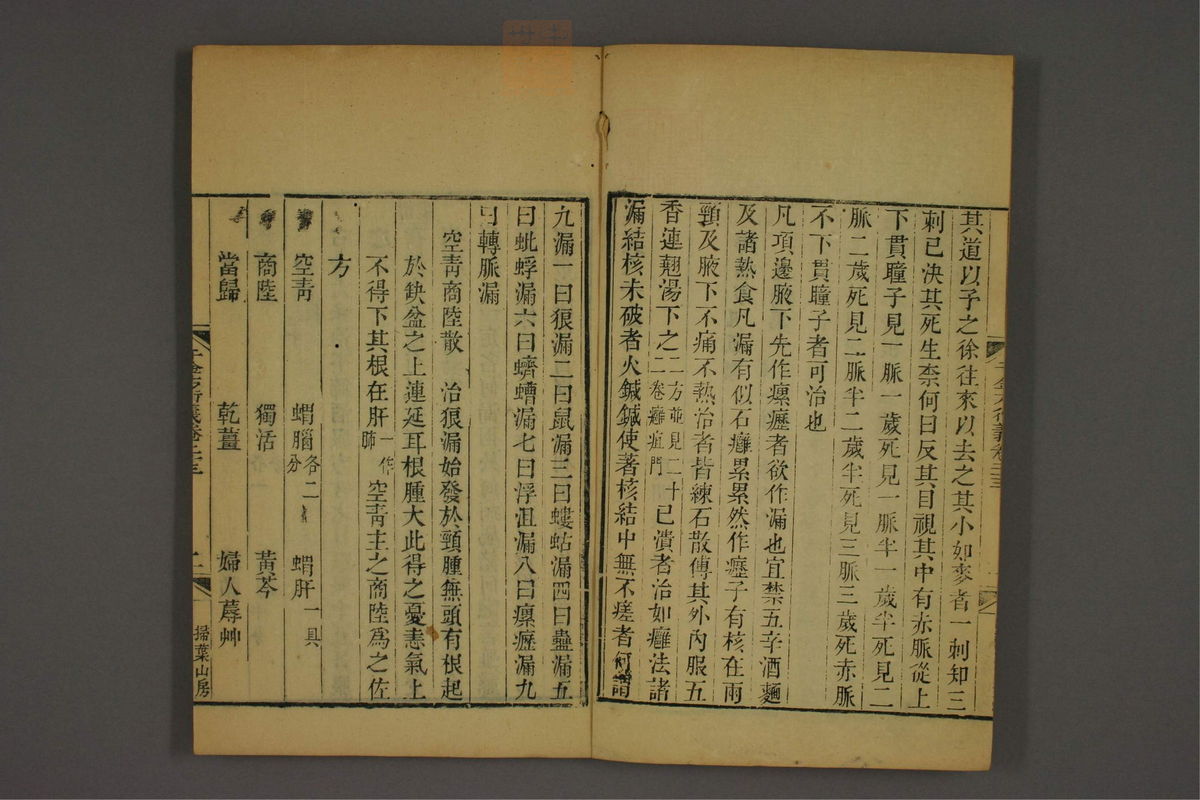 其道以予之徐往來以去之其小如麥者一刺知三
刺已決其死生柰何曰反其目視其中有赤脈從上
下貫瞳子見一脈一歲死見一脈半一歲半死見二
脈二歲死見二脈半二歲半死見三脈三歲死赤脈
不下貫瞳子者可治也
凡項邊腋下先作瘰癧者欲作漏也宜禁五辛酒麵
及諸熱食凡漏有似石癰累累然作癧子有核在兩
頸及腋下不痛不熱治者皆練石散傅其外內服五
香連翹湯下之二方並見二十二卷癰疽門已潰者治如癰法諸
漏結核未破者火鍼鍼使著核結中無不瘥者何謂
九漏一曰狼漏二曰鼠漏三曰螻蛄漏四曰蠱漏五
曰蚍蜉漏六曰蠐螬漏七曰浮沮漏八曰瘰癧漏九
曰轉脈漏
空青商陸散 治狼漏始發於頸腫無頭有根起
於缺盆之上連延耳根腫大此得之憂恚氣上
不得下其根在肝一作肺空青主之商陸爲之佐
方
空青 蝟腦各二分 蝟肝一具
商陸 獨活 黃芩
當歸 乾薑 婦人蓐艸
二 掃葉山房